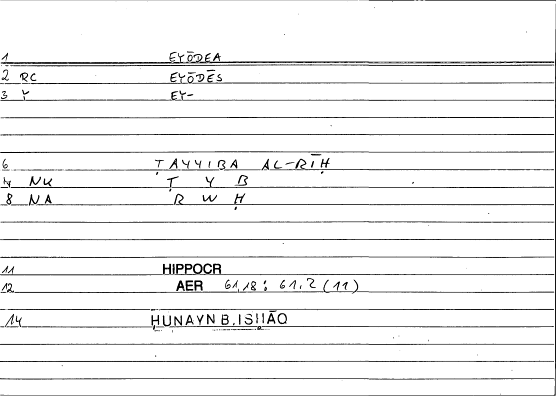 1 EYŌDEA
2 RC EYŌDĒS
3 Y EY-
6 ṬAYYIBA AL-RĪḤ
7 NK Ṭ Y B
8 NA R W Ḥ
11 HIPPOCR
12 AER 61,18: 61.2 (11)
14 ḤUNAYN B.ISḤĀQ